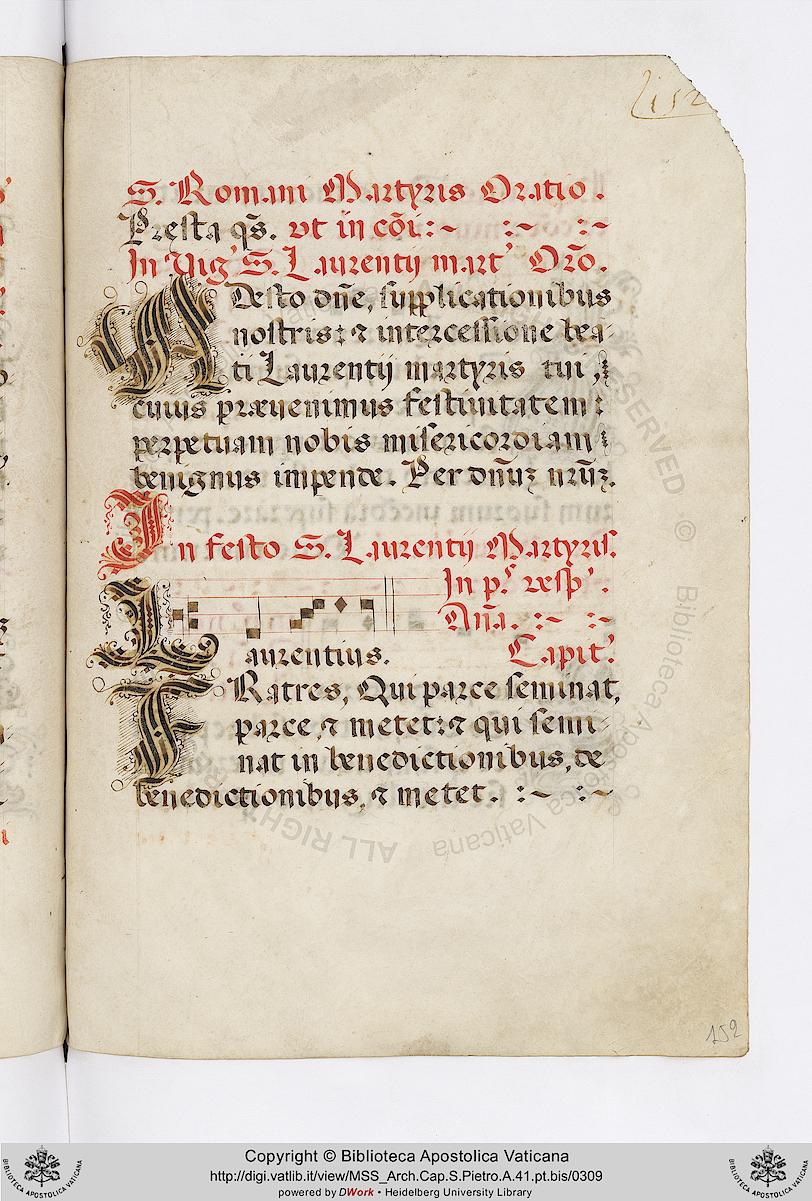 152
S. Romani Martyris Oratio.
Presta qs̃. vt in cõi:~ :~ :~
In Vig' S. Laurentij mart' Orõ.
ADesto dñe, supplicationibus
nostris: ⁊ intercessione bea-
ti Laurentij martyris tui,
cuius præuenimus festiuitatem:
perpetuam nobis misericordiam
benignus impende. Per dñuȝ nrũȝ.
In festo S. Laurentij Martyris.
In p.ˢ vesp'.
Añã. :~ :~
Laurentius. Capit.'
FRatres, Qui parce seminat,
parce, ⁊ metet: ⁊ qui semi-
nat in benedictionibus, de
benedictionibus, ⁊ metet. :~ :~
152
ALL RIGHTS RESERVED © Biblioteca Apostolica Vaticana
Copyright © Biblioteca Apostolica Vaticana
http://digi.vatlib.it/view/MSS_Arch.Cap.S.Pietro.A.41.pt.bis/0309
powered by DWork • Heidelberg University Library
BIBLIOTECA APOSTOLICA VATICANA
BIBLIOTECA APOSTOLICA VATICANA